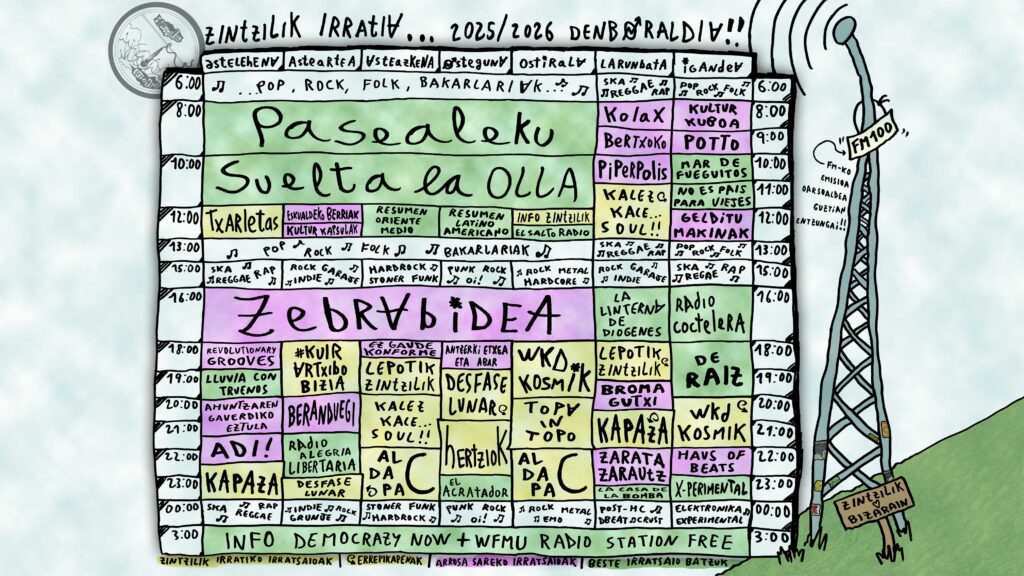 ZINTZILIK IRRATIA... 2025/2026 DENBORALDIA!!
astelehena Asteartea Asteazkena Osteguna Ostirala LARUNbata iGandea
6:00 ...POP, ROCK, FOLK, BAKARLARIAK... SKA REGGAE RAP POP ROCK FOLK 6:00
8:00 Pasealeku KolaX KULTUR KUBOA 8:00
BeRTXoKo POTTO 9:00
10:00 Suelta la OLLA PiPeRPolis MAR DE FUEGUITOS 10:00
KALEZ KALE... SOUL!! NO ES PAIS PARA VIEJES 11:00
12:00 TxARletas ESKUALDEKO BERRIAK RESUMEN ORIENTE MEDIO RESUMEN LATINO AMERICANO INFO ZINTZILIK GELDiTU MAKINAK 12:00
KULTUR KATSULAK EL SALTO RADIO
13:00 POP ROCK FOLK BAKARLARIAK SKA REGGAE RAP POP ROCK FOLK 13:00
15:00 SKA REGGAE RAP ROCK GARAGE INDIE HARDROCK STONER FUNK PUNK ROCK oi! ROCK METAL HARDCORE ROCK GARAGE INDIE SKA RAP REGGAE 15:00
16:00 ZebRAbiDEA LA LINTERNA DE DIOGENES RADIO COCTELERA 16:00
18:00 REVOLUTIONARY GROOVES #KUIR ARTXIBO BIZIA EZ GAUDE KONFORME ANTZERKI ETXEA ETA ABAR WKD KOSMiK LEPOTIK ZINTZILIK DE RAIZ 18:00
19:00 LLUVIA CON TRUENOS LEPOTIK ZINTZILIK DESFASE LUNAR BROMA GUTXI 19:00
20:00 AHUNTZAREN GAUERDIKO EZTULA BERANDUEGI KALEZ KALE... SOUL!! TOPA IN TOPO KAPAZA WKD KOSMIK 20:00
21:00 ADI! RADIO ALEGRIA LIBERTARIA hERTZIOK 21:00
22:00 ALDAPAC ALDAPAC ZARATA ZARAUTZ HAUS OF BEATS 22:00
23:00 KAPAZA DESFASE LUNAR EL ACRATADOR LA CASA DE LA BOMBA X-PERIMENTAL 23:00
00:00 SKA RAP REGGAE INDIE ROCK GRUNGE STONER FUNK HARDROCK PUNK ROCK oi! ROCK METAL EMO POST-HC DBEAT CRUST ELEKTRONIKA EXPERIMENTAL 00:00
3:00 INFO DEMOCRAZY NOW + WFMU RADIO STATION FREE 3:00
ZINTZILIK IRRATIKO IRRATSAIOAK ERREPIKAPENAK ARROSA SAREKO IRRATSAIOAK BESTE IRRATSAIO BATZUK
FM100
FM-KO
EMISIOA
OARSOALDEA
GUZTIAN
ENTZUNGAI!!
ZINTZILIK
BIZARAIN